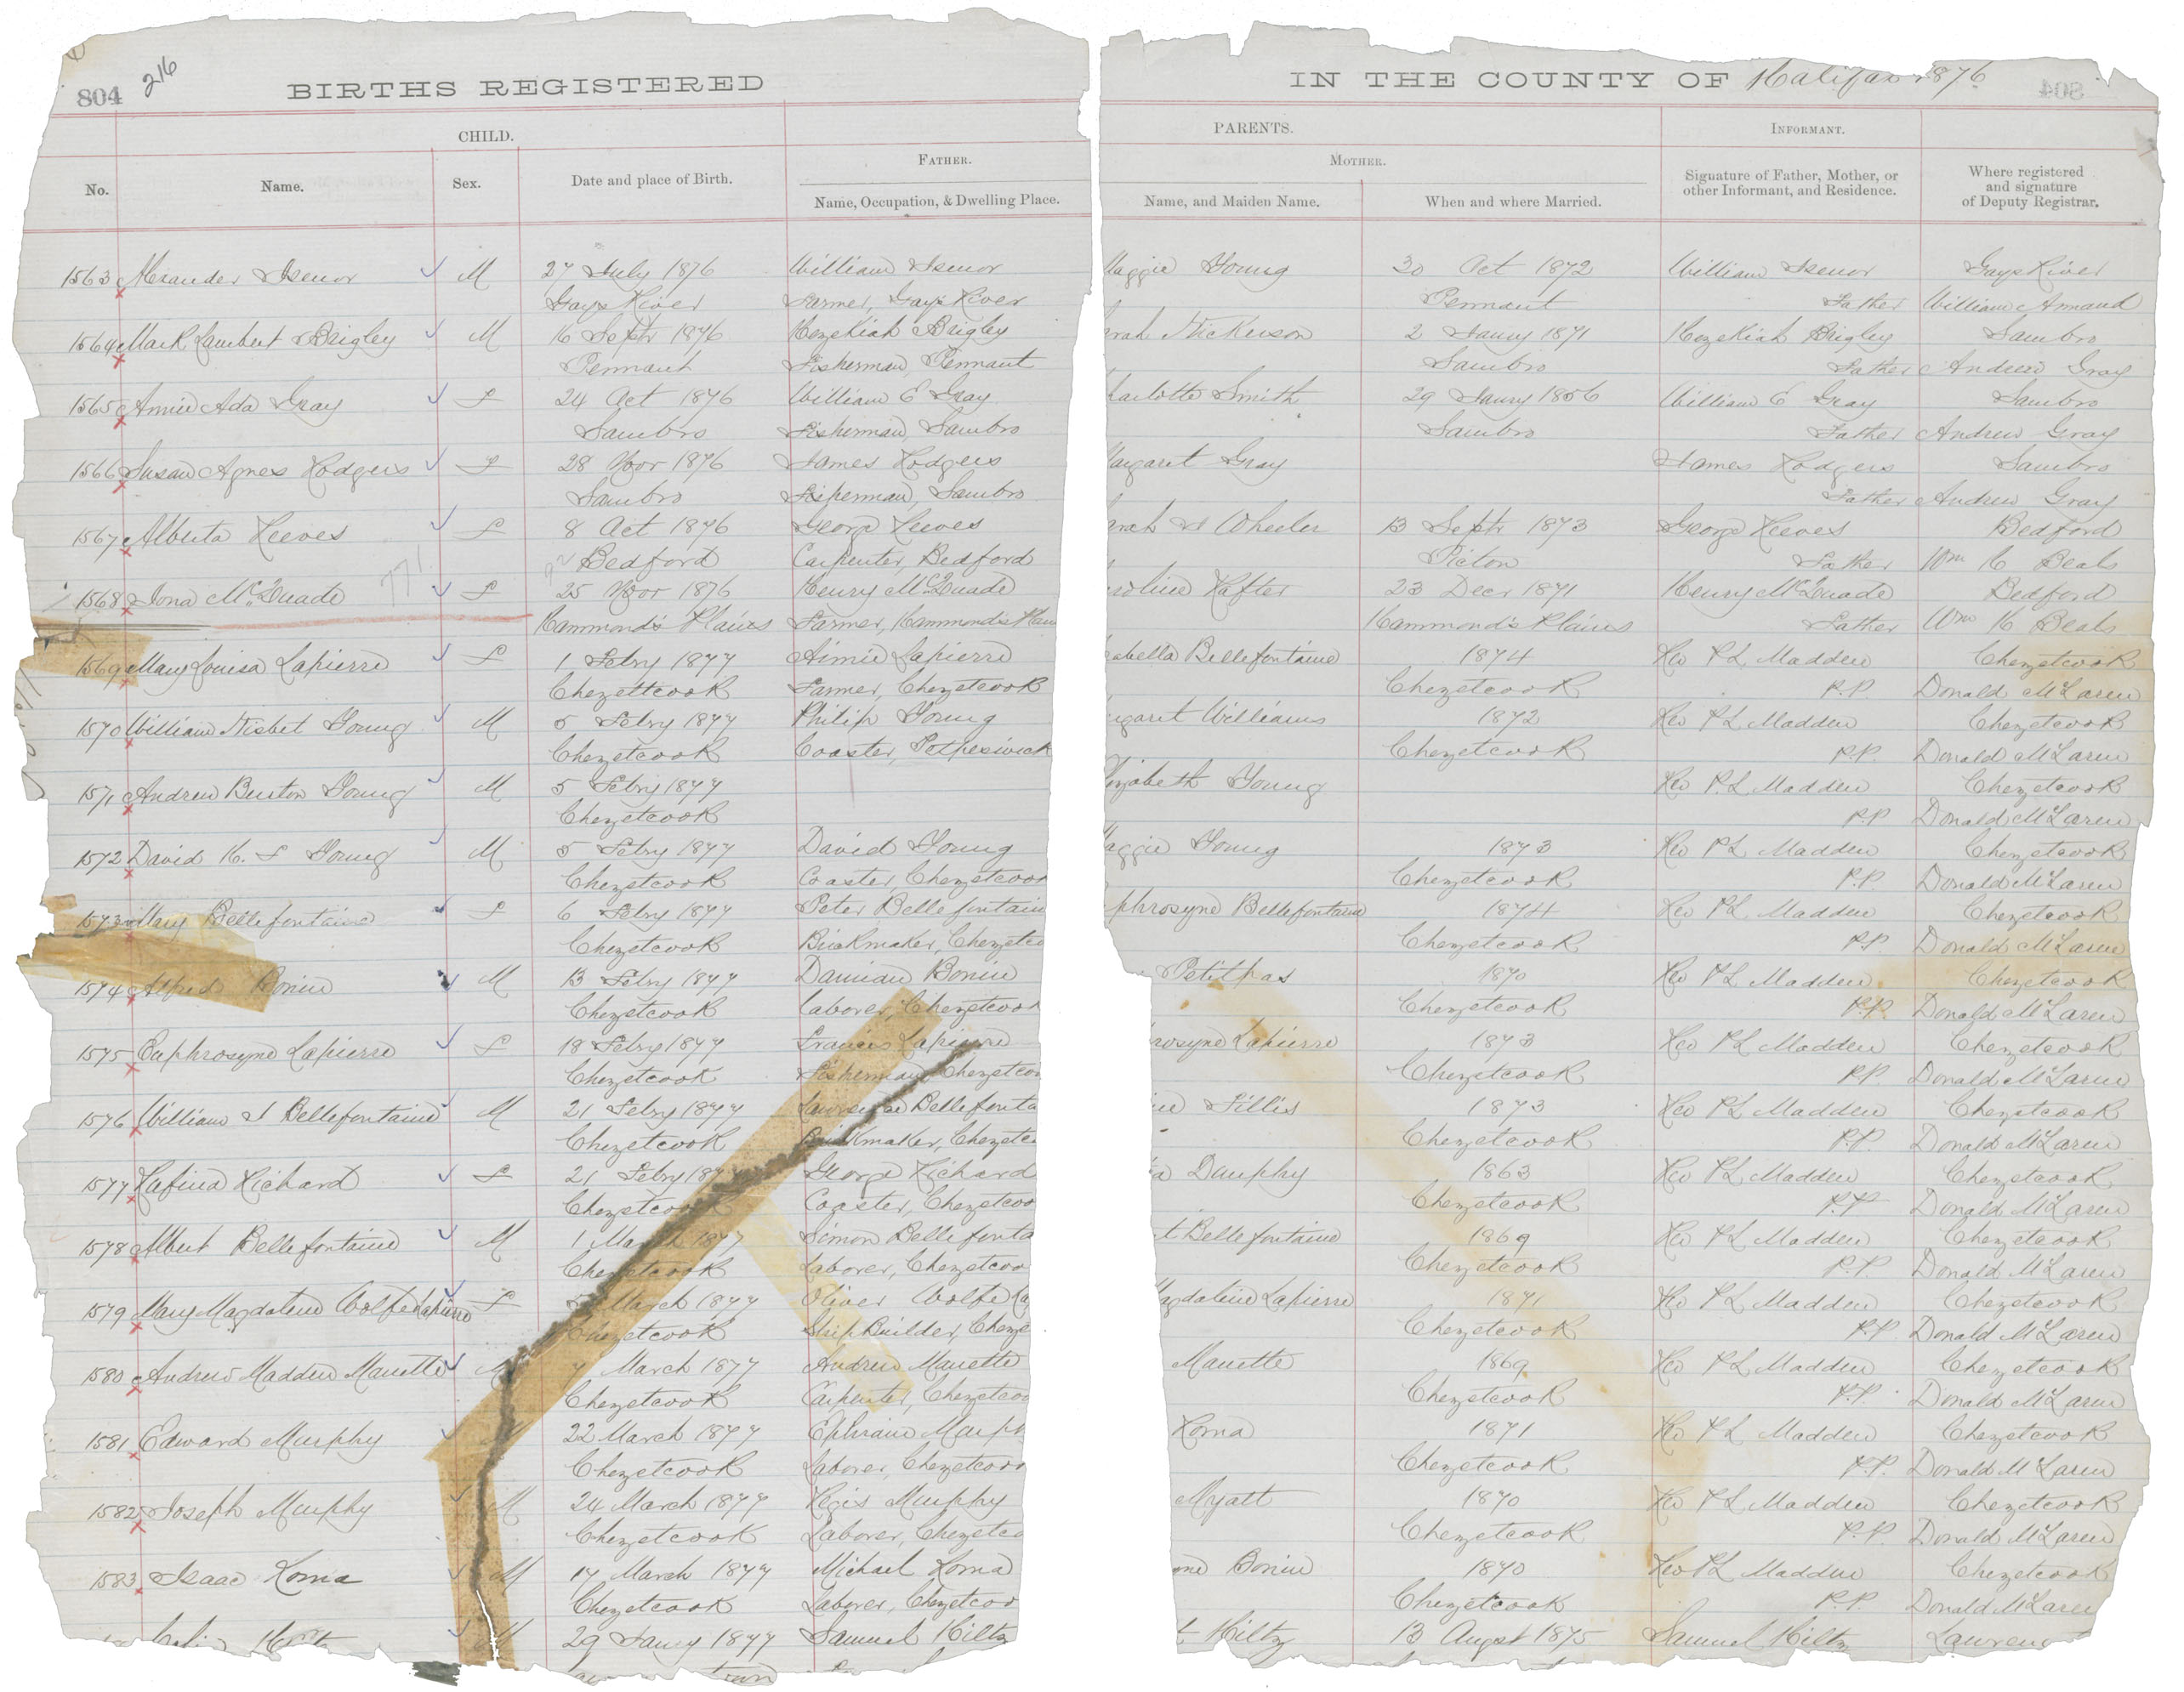 804
216
BIRTHS REGISTERED
IN THE COUNTY OF Halifax 1876
CHILD.
PARENTS.
INFORMANT.
FATHER.
MOTHER.
No.
Name.
Sex.
Date and place of Birth.
Name, Occupation, & Dwelling Place.
Name, and Maiden Name.
When and where Married.
Signature of Father, Mother, or other Informant, and Residence.
Where registered and signature of Deputy Registrar.
1563 Alexander Isenor M 27 July 1876 William Isenor Maggie Young 30 Oct 1872 William Isenor Gays River
Gays River Farmer, Gays River Pennant Father William Annand
1564 Mark Lambert Brigley M 16 Septr 1876 Hezekiah Brigley rah Nickerson 2 Jany 1871 Hezekiah Brigley Sambro
Pennant Fisherman, Pennant Sambro Father Andrew Gray
1565 Annie Ada Gray F 24 Oct 1876 William E Gray harlotte Smith 29 Jany 1856 William E Gray Sambro
Sambro Fisherman, Sambro Sambro Father Andrew Gray
1566 Susan Agnes Hodgers F 28 Novr 1876 James Hodgers Margaret Gray James Hodgers Sambro
Sambro Fisherman, Sambro Father Andrew Gray
1567 Alberta Reeves F 8 Oct 1876 George Reeves arah Wheeler 13 Septr 1873 George Reeves Bedford
Bedford Carpenter, Bedford Picton Father Wm H Beals
1568 Iona McQuade 771 F 25 Novr 1876 Henry McQuade roline Hafter 23 Decr 1871 Henry McQuade Bedford
Hammond's Plains Farmer, Hammond's Plain Hammond's Plains Father Wm H Beals
1569 Mary Louisa Lapierre F 1 Febry 1877 Aimie Lapierre abella Bellefontaine 1874 Rev P L Madden Chezetcook
Chezettcook Farmer, Chezetcook Chezetcook P.P. Donald McLaren
1570 William Nisbet Young M 5 Febry 1877 Philip Young rgaret Williams 1872 Rev P L Madden Chezetcook
Chezetcook Coaster, Petpeswick Chezetcook P.P. Donald McLaren
1571 Andrew Burton Young M 5 Febry 1877 Elizabeth Young Rev P. L Madden Chezetcook
Chezetcook P.P. Donald McLaren
1572 David H. F Young M 5 Febry 1877 David Young Maggie Young 1873 Rev P L Madden Chezetcook
Chezetcook Coaster, Chezetcoo Chezetcook P.P. Donald McLaren
1573 Mary Bellefontaine F 6 Febry 1877 Peter Bellefontain phrosyne Bellefontaine 1874 Rev P L Madden Chezetcook
Chezetcook Brickmaker, Chezetco Chezetcook P.P. Donald McLaren
1574 Alfred Bonin M 13 Febry 1877 Damian Bonin Petitpas 1870 Rev P L Madden Chezetcook
Chezetcook Laborer, Chezetcook Chezetcook P.P. Donald McLaren
1575 Euphrosyne Lapierre F 18 Febry 1877 Francis Lapierre rosyne Lapierre 1873 Rev P L Madden Chezetcook
Chezetcook Fisherman, Chezetcoo Chezetcook P.P. Donald McLaren
1576 William J Bellefontaine M 21 Febry 1877 Lawrence Bellefonta ine Fillis 1873 Rev P L Madden Chezetcook
Chezetcook Brickmaker, Chezetc Chezetcook P.P. Donald McLaren
1577 Rufina Richard F 21 Febry 1877 George Richard a Dauphy 1863 Rev P L Madden Chezetcook
Chezetcook Coaster, Chezetcoo Chezetcook P.P. Donald McLaren
1578 Albert Bellefontaine M 1 March 1877 Simon Bellefonta t Bellefontaine 1869 Rev P L Madden Chezetcook
Chezetcook Laborer, Chezetcoo Chezetcook P.P. Donald McLaren
1579 Mary Magdalene Wolfe Lapierre F March 1877 Oliver Wolfe La agdalene Lapierre 1871 Rev P L Madden Chezetcook
Chezetcook Ship Builder, Cheze Chezetcook P.P. Donald McLaren
1580 Andrew Madden Manette M 7 March 1877 Andrew Manette Manette 1869 Rev P L Madden Chezetcook
Chezetcook Carpenter, Chezetcoo Chezetcook P.P. Donald McLaren
1581 Edward Murphy M 22 March 1877 Ephraim Murph Roma 1871 Rev P L Madden Chezetcook
Chezetcook Laborer, Chezetcoo Chezetcook P.P. Donald McLaren
1582 Joseph Murphy M 24 March 1877 Regis Murphy Myatt 1870 Rev P L Madden Chezetcook
Chezetcook Laborer, Chezetco Chezetcook P.P. Donald McLaren
1583 Isaac Roma M 17 March 1877 Michael Roma one Bonin 1870 Rev P L Madden Chezetcook
Chezetcook Laborer, Chezetcoo Chezetcook P.P. Donald McLaren
M 29 Jany 1877 Samuel Hiltz t Hiltz 13 Augst 1875 Samuel Hiltz Lawrenc